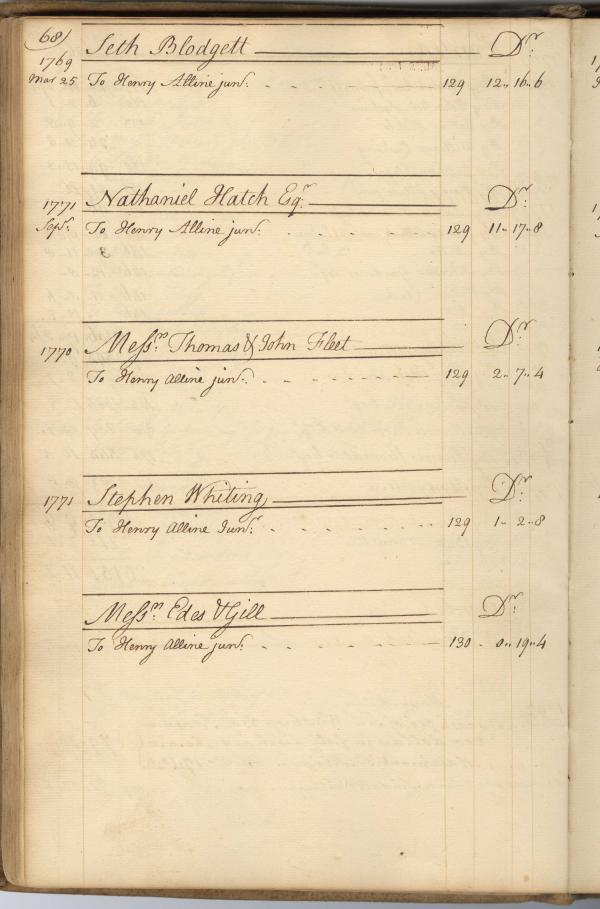 68
Seth Blodgett Dr.
1769
Mar 25 To Henry Alline junr. 129 12.. 16.. 6
Nathaniel Hatch Esqr. Dr.
1771
Sepr. To Henry Alline junr. 129 11.. 17.. 8
3
Messrs. Thomas & John Fleet Dr.
1770
To Henry Alline junr. 129 2.. 7.. 4
1771 Stephen Whiting Dr.
To Henry Alline Junr. 129 1.. 2.. 8
Messrs. Edes & Gill Dr.
To Henry Alline junr. 130 0.. 19.. 4